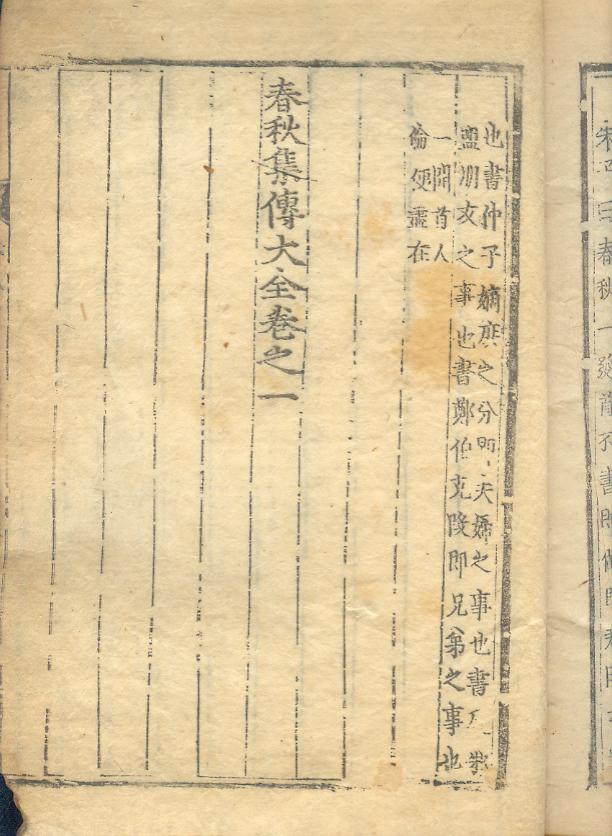 春秋一發首不書即位即君臣
也書仲子嫡庶之分即夫婦之事也書及邾
盟朋友之事也書鄭伯克段即兄弟之事也
一開首人
倫便盡在
春秋集傳大全卷之一